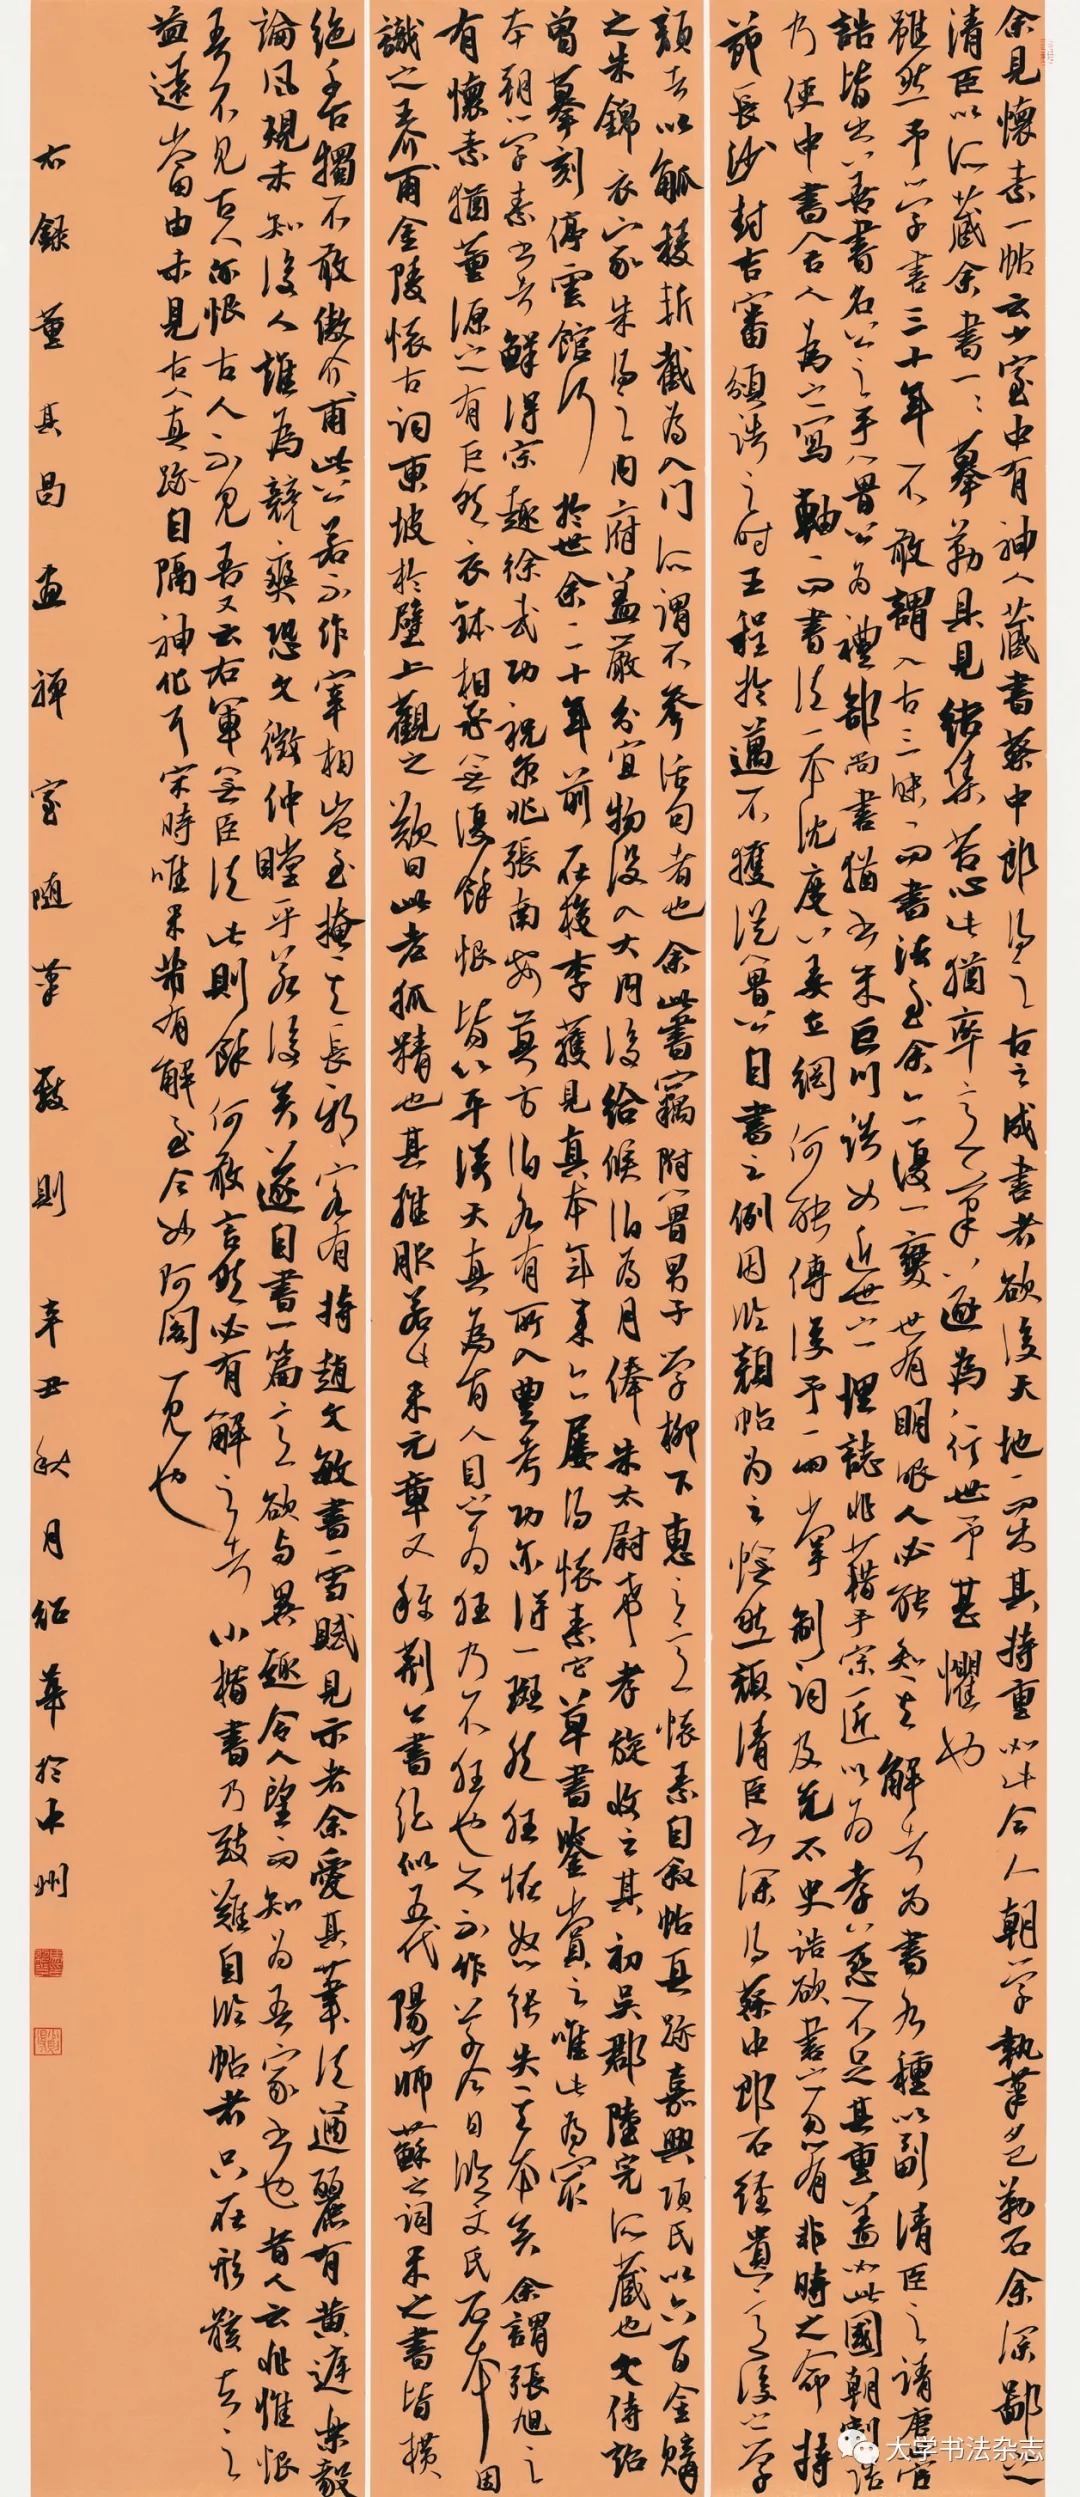 余見懷素一帖云少室中有神人藏書蔡中郎得之古之成書者欲後天地而出其持重如此今人朝學執筆夕已勒石余深鄙之
清臣以所藏余書一一摹勒具見結集苦心此猶率意筆遂為行世予甚懼也
雖然予學書三十年不敢謂入古三昧而書法至余亦復一變世有明眼人必能知其解者為書各種以副清臣之請唐官
誥皆出善書名公之手魯公為禮部尚書猶書朱巨川誥如近世埋誌非藉手宗近以為孝慈不足其重蓋如此國朝制誥
乃使中書舍人為之寫軸而書法一本沈度姜立綱何能傳後予兩掌制詞及先太史誥欲書之忽有非時之命持
節長沙封吉藩頒誥之時王程於邁不獲從魯公自書之例因臨顏帖為之悵然顏清臣書深得蔡中郎石經遺意後之學
顏者以觚稜斬截為入門所謂不參活句者也余此書竊附魯男子學柳下惠之意懷素自叙帖真跡嘉興項氏以六百金購
之朱錦衣家朱得之內府蓋嚴分宜物沒入大內後給侯伯為月俸朱太尉希孝旋收之其初吳郡陸完所藏也文待詔
曾摹刻停雲館行於世余二十年前在檇李獲見真本年來亦屢得懷素它草書鑒賞之唯此為最
本朝學素書者鮮得宗趣徐武功祝京兆張南安莫方伯各有所入豐考功亦得一斑然狂怪怒張失其本矣余謂張旭之
有懷素猶董源之有巨然衣鉢相承無復餘恨皆以平淡天真為旨人目之為狂乃不狂也久不作草今日臨文氏石本因
識之王介甫金陵懷古詞東坡於壁上觀之歎曰此老狐精也其推服若此米元章又稱荊公書絕似五代楊少師蘇之詞米之書皆橫
絕千古獨不敢傲介甫此公若不作宰相豈至掩其長邪客有持趙文敏書雪賦見示者余愛其筆法遒麗有黃庭樂毅
論風規未知後人誰為競爽恐文徵仲瞠乎若後矣遂自書一篇意欲與異趣令人望而知為吾家書也昔人云非惟恨
吾不見古人亦恨古人不見吾又云右軍無臣法此則余何敢言然必有解之者 小楷書乃致難自臨帖者只在形骸去之
益遠當由未見古人真跡自隔神化耳宋時唯米芾有解至今如阿閦一見也
右錄董其昌畫禪室隨筆數則 辛丑秋月紹華於中州
大学书法杂志